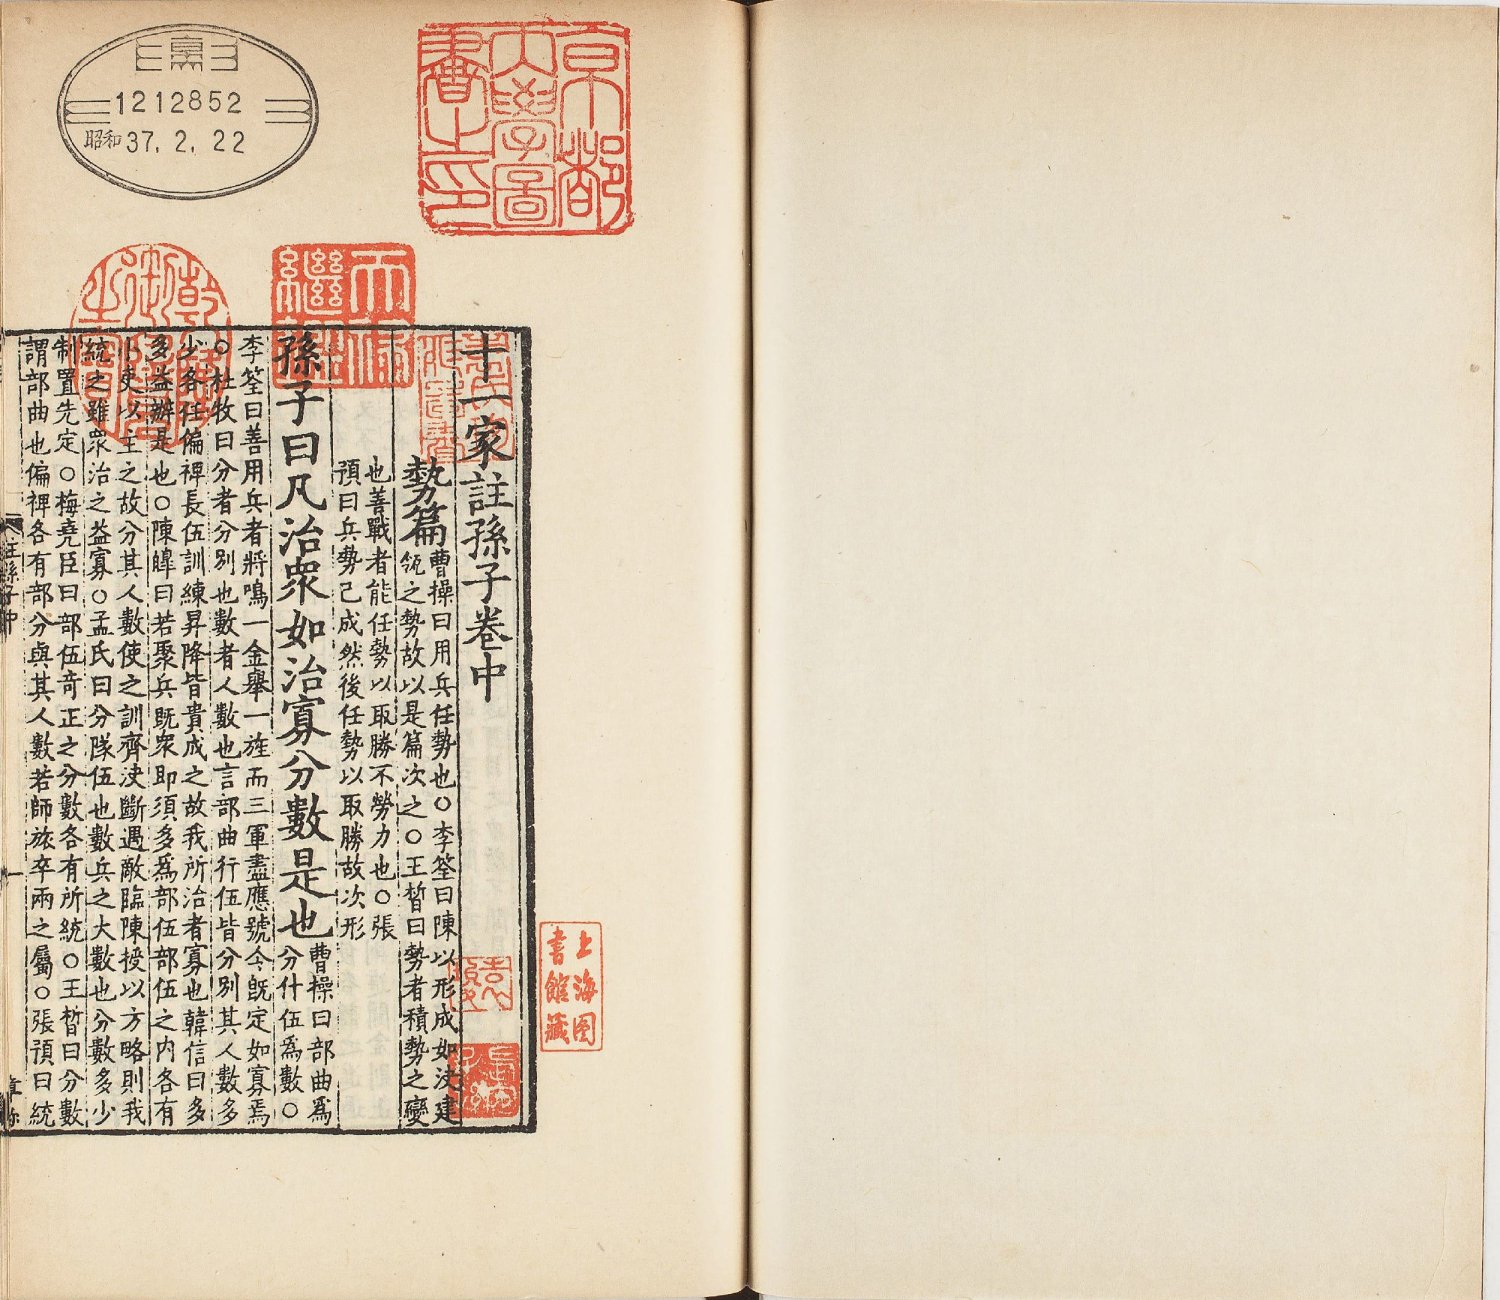 1212852
昭和37.2.22
京都
大學圖
書之印
十一家註孫子卷中
勢篇
曹操曰用兵任勢也○李筌曰陳以形成如決建
瓴之勢故以是篇次之○王晳曰勢者積勢之變
也善戰者能任勢以取勝不勞力也○張
預曰兵勢已成然後任勢以取勝故次形
孫子曰凡治眾如治寡分數是也
曹操曰部曲爲
分什伍爲數○
李筌曰善用兵者將鳴一金舉一旌而三軍盡應號令既定如寡焉
○杜牧曰分者分別也數者人數也言部曲行伍皆分別其人數多
少各任偏裨長伍訓練昇降皆責成之故我所治者寡也韓信曰多
多益辦是也○陳皥曰若聚兵既眾即須多爲部伍部伍之內各有
小吏以主之故分其人數使之訓齊決斷遇敵臨陳授以方略則我
統之雖眾治之益寡○孟氏曰分隊伍也數兵之大數也分數多少
制置先定○梅堯臣曰部伍奇正之分數各有所統○王晳曰分數
謂部曲也偏裨各有部分與其人數若師旅卒兩之屬○張預曰統
上海图
書館藏